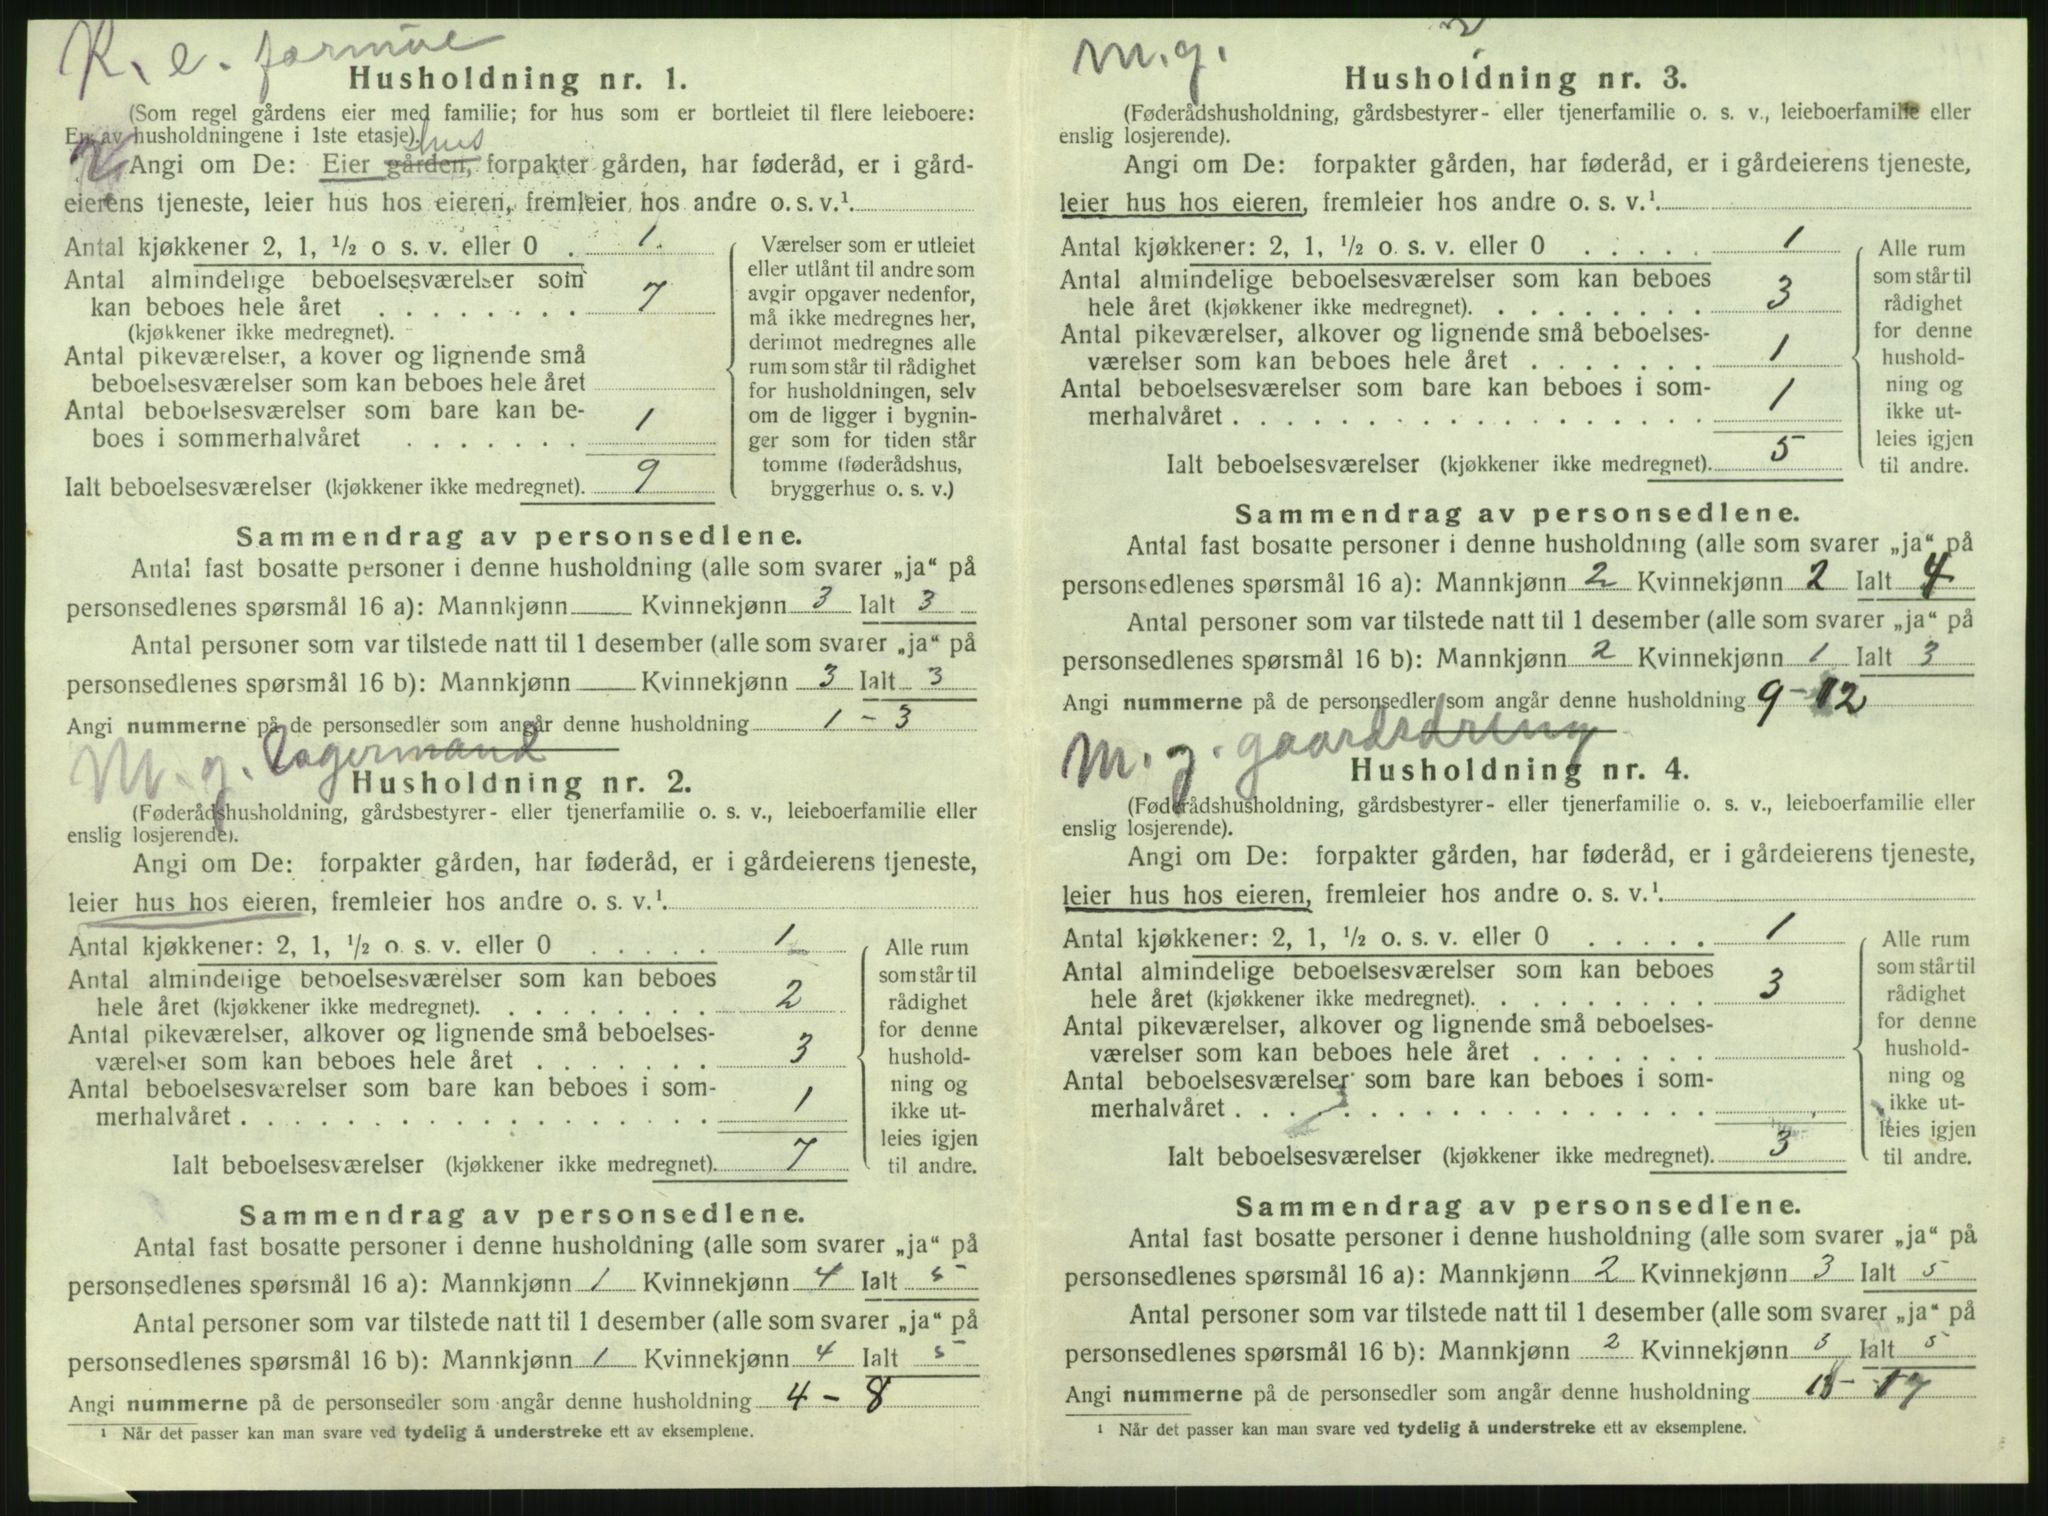 K. e. formue
Husholdning nr. 1.
(Som regel gårdens eier med familie; for hus som er bortleiet til flere leieboere:
En av husholdningene i 1ste etasje).
hus
Angi om De: Eier gården, forpakter gården, har føderåd, er i gård-
eierens tjeneste, leier hus hos eieren, fremleier hos andre o. s. v.¹
Antal kjøkkener 2, 1, ½ o s. v. eller 0 . 1
Antal almindelige beboelsesværelser som
kan beboes hele året . . . . . . . . 7
(kjøkkener ikke medregnet).
Antal pikeværelser, a kover og lignende små
beboelsesværelser som kan beboes hele året
Antal beboelsesværelser som bare kan be-
boes i sommerhalvåret . . . . . . . 1
Ialt beboelsesværelser (kjøkkener ikke medregnet). 9
Værelser som er utleiet
eller utlånt til andre som
avgir opgaver nedenfor,
må ikke medregnes her,
derimot medregnes alle
rum som står til rådighet
for husholdningen, selv
om de ligger i bygnin-
ger som for tiden står
tomme (føderådshus,
bryggerhus o. s. v.)
Sammendrag av personsedlene.
Antal fast bosatte personer i denne husholdning (alle som svarer „ja“ på
personsedlenes spørsmål 16 a): Mannkjønn — Kvinnekjønn 3 Ialt 3
Antal personer som var tilstede natt til 1 desember (alle som svarer „ja“ på
personsedlenes spørsmål 16 b): Mannkjønn — Kvinnekjønn 3 Ialt 3
Angi nummerne på de personsedler som angår denne husholdning 1 - 3
M. g. Lagermand
Husholdning nr. 2.
(Føderådshusholdning, gårdsbestyrer- eller tjenerfamilie o. s. v., leieboerfamilie eller
enslig losjerende).
Angi om De: forpakter gården, har føderåd, er i gårdeierens tjeneste,
leier hus hos eieren, fremleier hos andre o. s. v.¹.
Antal kjøkkener: 2, 1, ½ o. s. v. eller 0 . . . . . 1
Antal almindelige beboelsesværelser som kan beboes
hele året (kjøkkener ikke medregnet). . . . . . . . . 2
Antal pikeværelser, alkover og lignende små beboelses-
værelser som kan beboes hele året . . . . . . . 3
Antal beboelsesværelser som bare kan beboes i som-
merhalvåret . . . . . . . . . . . . . . . . . . 1
Ialt beboelsesværelser (kjøkkener ikke medregnet). 7
Alle rum
som står til
rådighet
for denne
hushold-
ning og
ikke ut-
leies igjen
til andre.
Sammendrag av personsedlene.
Antal fast bosatte personer i denne husholdning (alle som svarer „ja“ på
personsedlenes spørsmål 16 a): Mannkjønn 1 Kvinnekjønn 4 Ialt 5
Antal personer som var tilstede natt til 1 desember (alle som svarer „ja“ på
personsedlenes spørsmål 16 b): Mannkjønn 1 Kvinnekjønn 4 Ialt 5
Angi nummerne på de personsedler som angår denne husholdning 4 - 8
¹ Når det passer kan man svare ved tydelig å understreke ett av eksemplene.
M. g.
Husholdning nr. 3.
(Føderådshusholdning, gårdsbestyrer- eller tjenerfamilie o. s. v., leieboerfamilie eller
enslig losjerende).
Angi om De: forpakter gården, har føderåd, er i gårdeierens tjeneste,
leier hus hos eieren, fremleier hos andre o. s. v.¹.
Antal kjøkkener: 2, 1, ½ o. s. v. eller 0 . . . . . 1
Antal almindelige beboelsesværelser som kan beboes
hele året (kjøkkener ikke medregnet). . . . . . . . . 3
Antal pikeværelser, alkover og lignende små beboelses-
værelser som kan beboes hele året . . . . . . . 1
Antal beboelsesværelser som bare kan beboes i som-
merhalvåret . . . . . . . . . . . . . . . . . . 1
Ialt beboelsesværelser (kjøkkener ikke medregnet). 5
Alle rum
som står til
rådighet
for denne
hushold-
ning og
ikke ut-
leies igjen
til andre.
Sammendrag av personsedlene.
Antal fast bosatte personer i denne husholdning (alle som svarer „ja“ på
personsedlenes spørsmål 16 a): Mannkjønn 2 Kvinnekjønn 2 Ialt 4
Antal personer som var tilstede natt til 1 desember (alle som svarer „ja“ på
personsedlenes spørsmål 16 b): Mannkjønn 2 Kvinnekjønn 1 Ialt 3
Angi nummerne på de personsedler som angår denne husholdning 9 - 12
M. g. gaardsdreng
Husholdning nr. 4.
(Føderådshusholdning, gårdsbestyrer- eller tjenerfamilie o. s. v., leieboerfamilie eller
enslig losjerende).
Angi om De: forpakter gården, har føderåd, er i gårdeierens tjeneste,
leier hus hos eieren, fremleier hos andre o. s. v.¹.
Antal kjøkkener: 2, 1, ½ o. s. v. eller 0 . . . . . 1
Antal almindelige beboelsesværelser som kan beboes
hele året (kjøkkener ikke medregnet). . . . . . . . . 3
Antal pikeværelser, alkover og lignende små beboelses-
værelser som kan beboes hele året . . . . . . .
Antal beboelsesværelser som bare kan beboes i som-
merhalvåret . . . . . . . . . . . . . . . . . .
Ialt beboelsesværelser (kjøkkener ikke medregnet). 3
Alle rum
som står til
rådighet
for denne
hushold-
ning og
ikke ut-
leies igjen
til andre.
Sammendrag av personsedlene.
Antal fast bosatte personer i denne husholdning (alle som svarer „ja“ på
personsedlenes spørsmål 16 a): Mannkjønn 2 Kvinnekjønn 3 Ialt 5
Antal personer som var tilstede natt til 1 desember (alle som svarer „ja“ på
personsedlenes spørsmål 16 b): Mannkjønn 2 Kvinnekjønn 3 Ialt 5
Angi nummerne på de personsedler som angår denne husholdning 13 - 17
¹ Når det passer kan man svare ved tydelig å understreke ett av eksemplene.